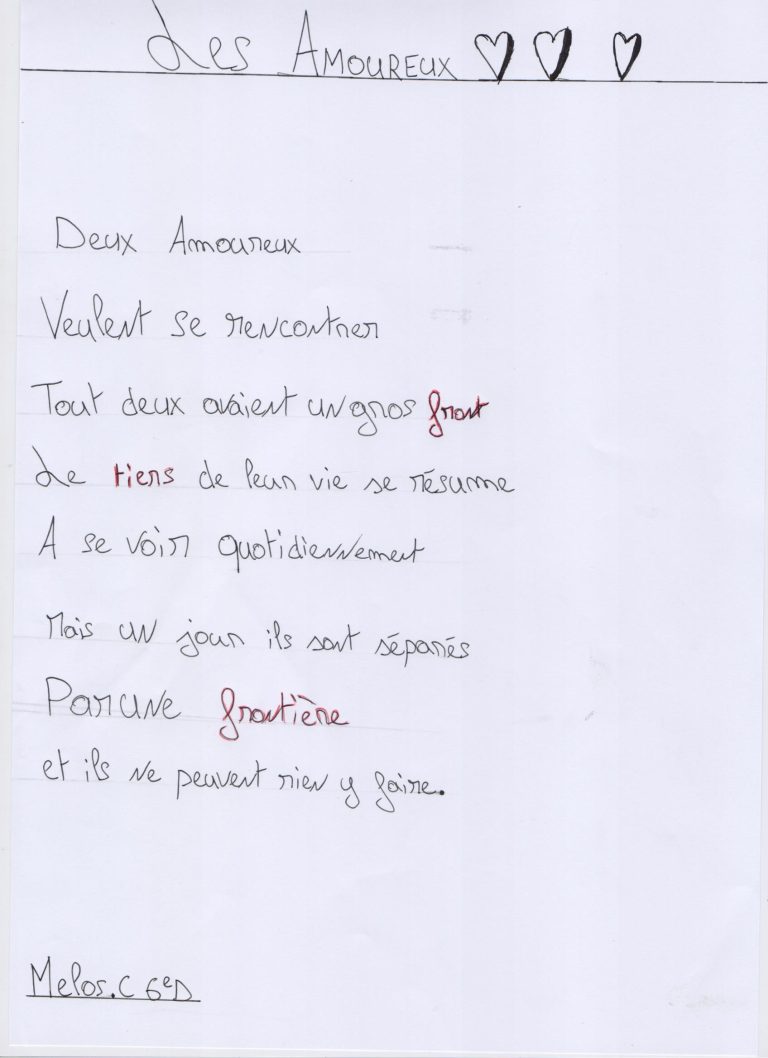 Les AMOUREUX ♡♡ ♡
Deux Amoureux
Veulent se rencontrer
Tout deux avaient un gros front
Le tiers de leur vie se résume
A se voir quotidiennement
Mais un jour ils sont séparés
Par une frontière
et ils ne peuvent rien y faire.
Melos.C 6eD